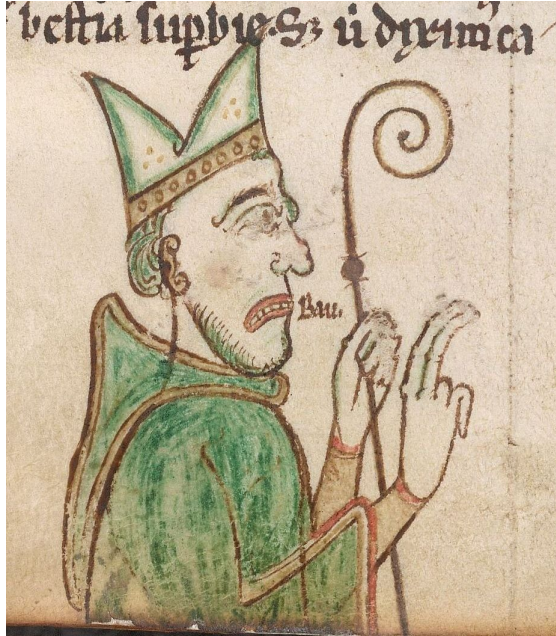 beſtia ſuꝑbie. Sꝫ ū dyrim̄ ca
Bau.